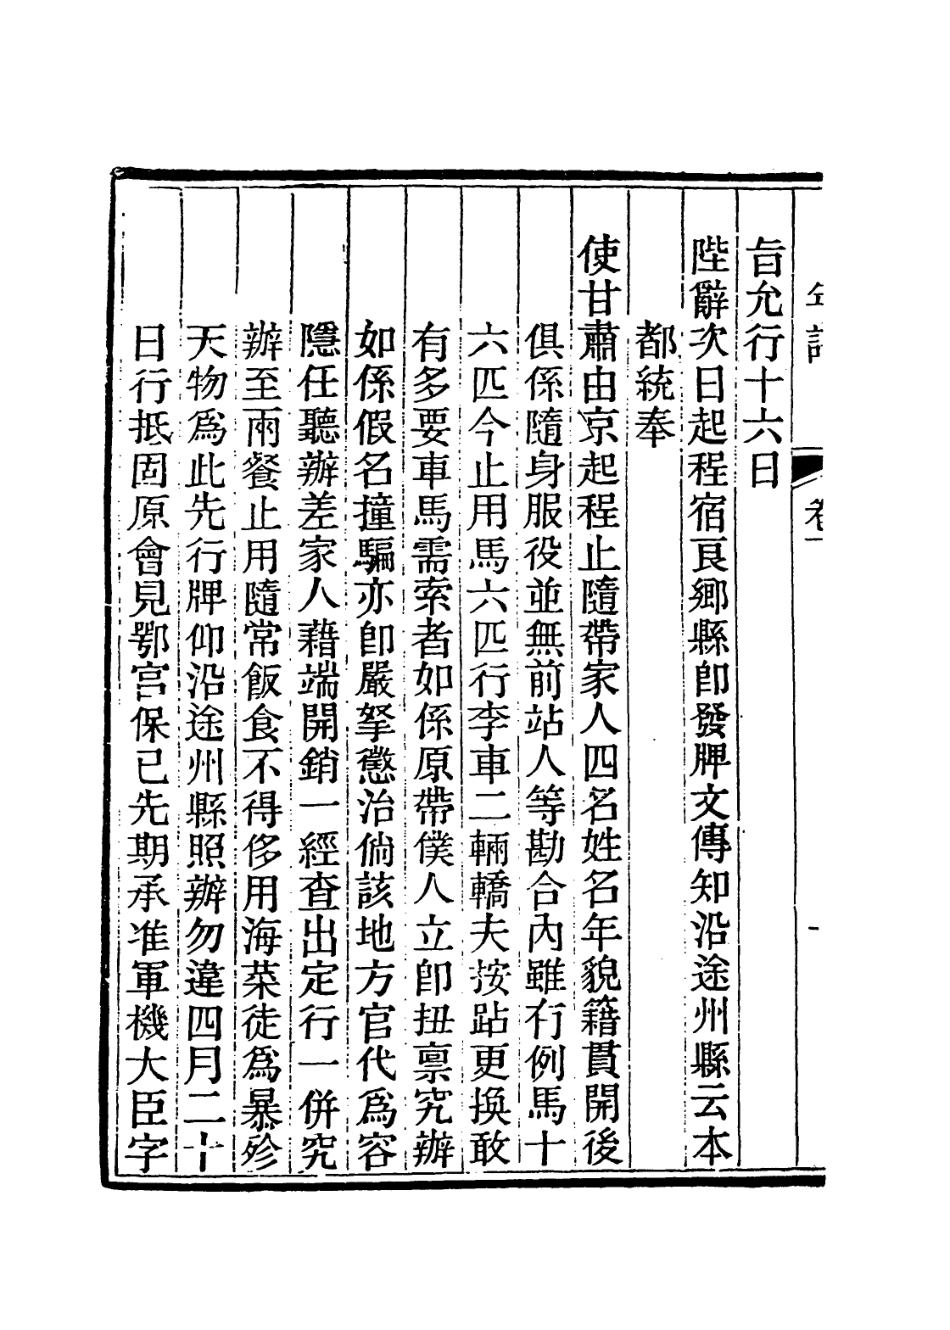 年譜 卷一
旨允行十六日
陛辭次日起程宿良鄉縣卽發牌文傳知沿途州縣云本
都統奉
使甘肅由京起程止隨帶家人四名姓名年貌籍貫開後
俱係隨身服役並無前站人等勘合內雖有例馬十
六匹今止用馬六匹行李車二輛轎夫按跕更換敢
有多要車馬需索者如係原帶僕人立卽扭稟究辦
如係假名撞騙亦卽嚴拏懲治倘該地方官代爲容
隱任聽辦差家人藉端開銷一經查出定行一併究
辦至兩餐止用隨常飯食不得侈用海菜徒爲暴殄
天物爲此先行牌仰沿途州縣照辦勿違四月二十
日行抵固原會見鄂宮保已先期承准軍機大臣字